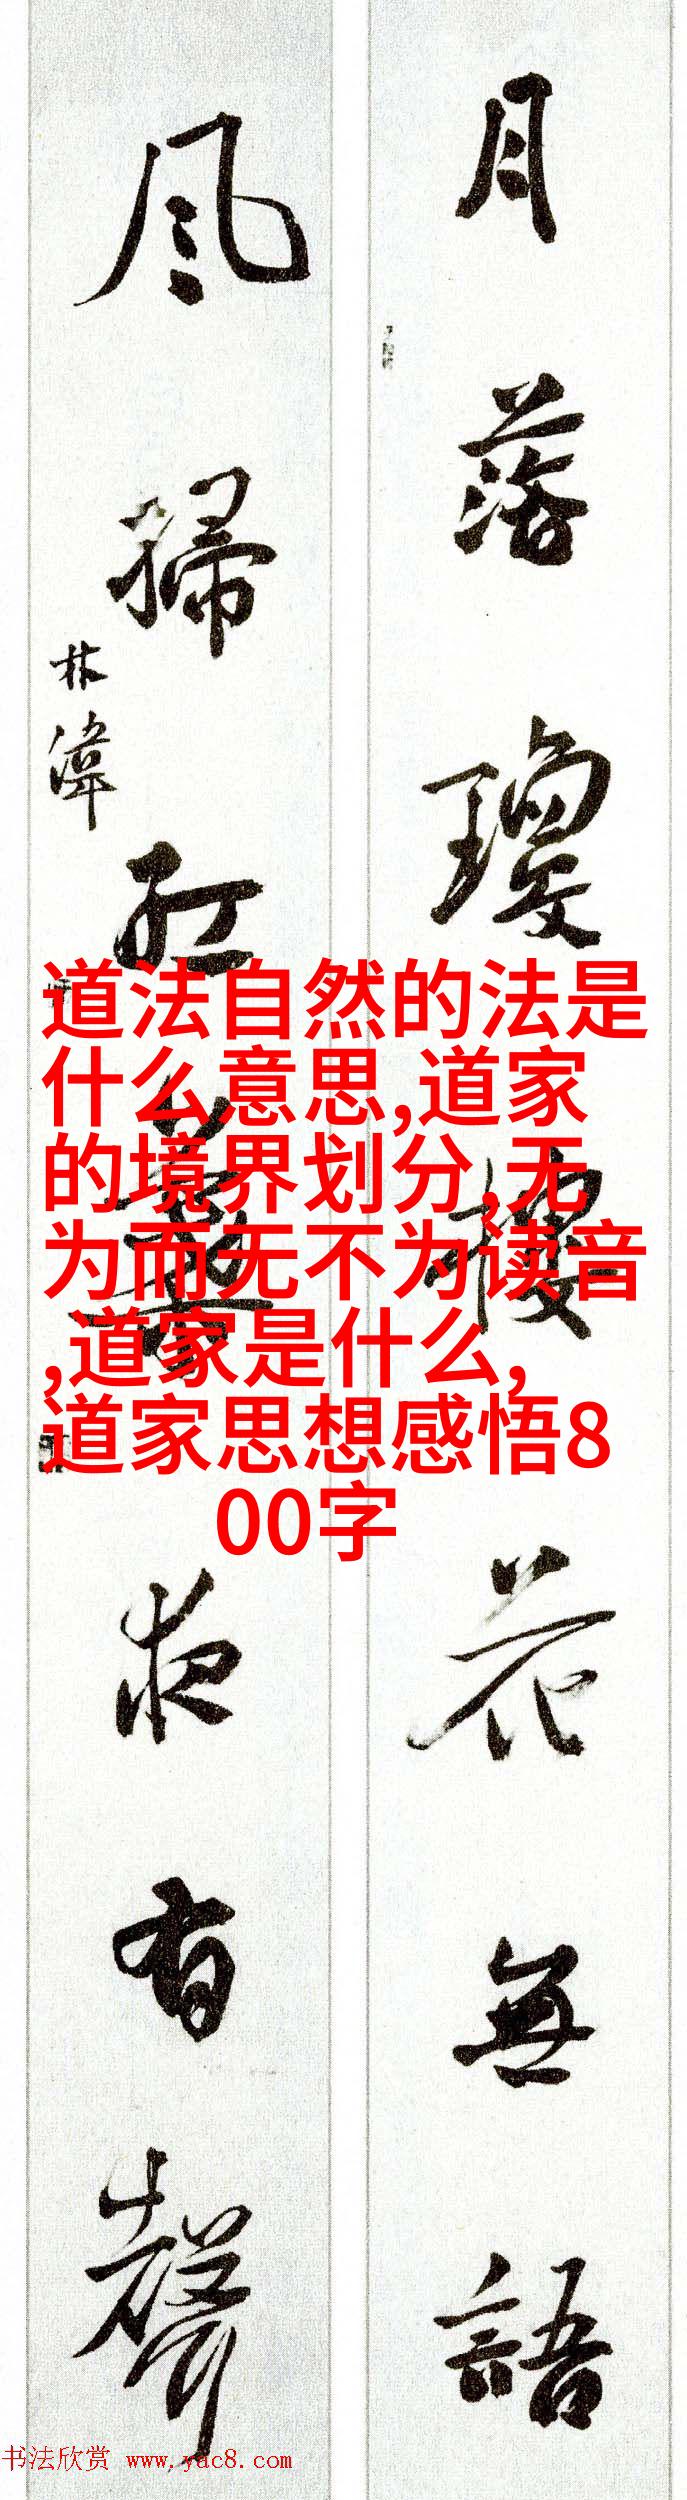 月落瓊樓花無語
风掃紅夜有聲
林
道法自然的法是
什么意思,道家
的境界划分,无
为而无不为读音
,道家是什么,
道家思想感悟8
00字
书法欣赏 www.yac8.com